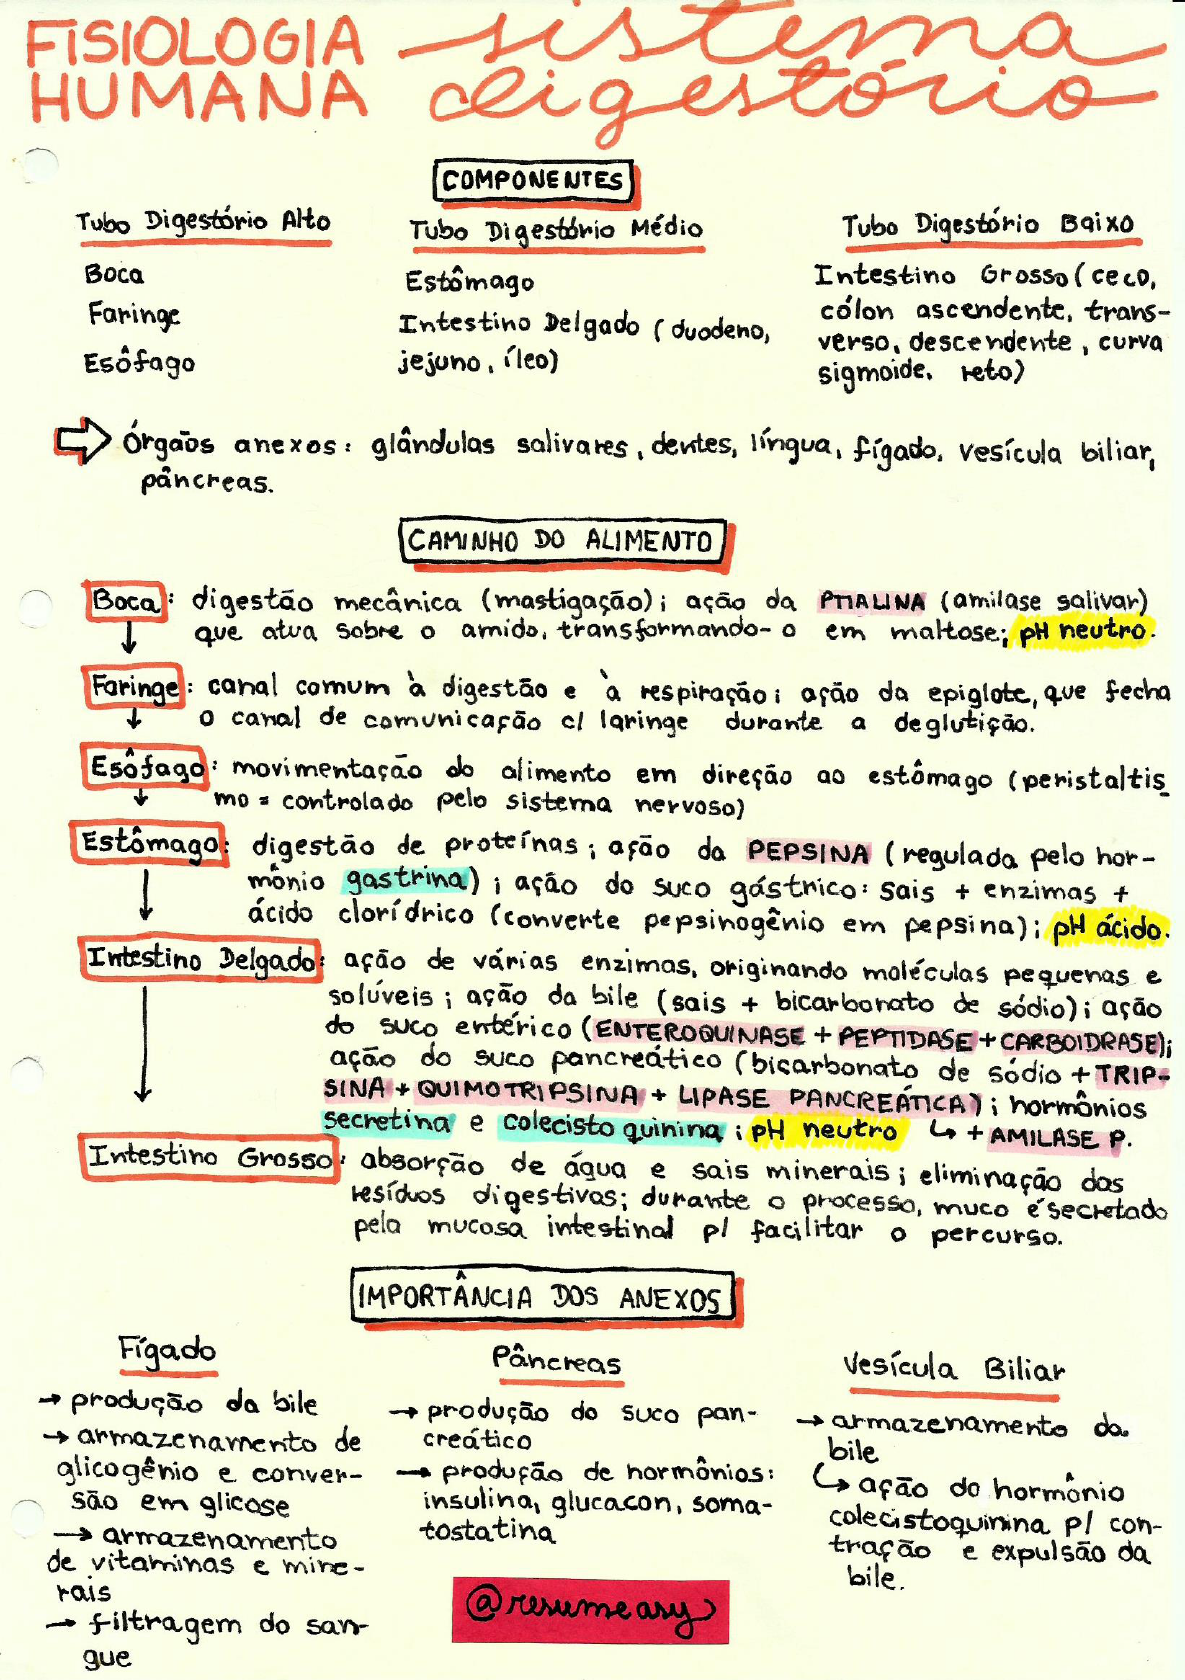 FISIOLOGIA HUMANA
sistema digestório
COMPONENTES
Tubo Digestório Alto
Boca
Faringe
Esôfago
Tubo Digestório Médio
Estômago
Intestino Delgado (duodeno,
jejuno, íleo)
Tubo Digestório Baixo
Intestino Grosso (ceco,
cólon ascendente, trans-
verso, descendente, curva
sigmoide, reto)
Órgãos anexos: glândulas salivares, dentes, língua, fígado, vesícula biliar,
pâncreas.
CAMINHO DO ALIMENTO
Boca: digestão mecânica (mastigação); ação da PTIALINA (amilase salivar)
que atua sobre o amido, transformando-o em maltose; pH neutro.
Faringe: canal comum à digestão e à respiração; ação da epiglote, que fecha
o canal de comunicação c/ laringe durante a deglutição.
Esôfago: movimentação do alimento em direção ao estômago (peristaltis_
mo = controlado pelo sistema nervoso)
Estômago: digestão de proteínas; ação da PEPSINA (regulada pelo hor-
mônio gastrina); ação do suco gástrico: sais + enzimas +
ácido clorídrico (converte pepsinogênio em pepsina); pH ácido.
Intestino Delgado: ação de várias enzimas, originando moléculas pequenas e
solúveis; ação da bile (sais + bicarbonato de sódio); ação
do suco entérico (ENTEROQUINASE + PEPTIDASE + CARBOIDRASE);
ação do suco pancreático (bicarbonato de sódio + TRIP-
SINA + QUIMOTRIPSINA + LIPASE PANCREÁTICA); hormônios
secretina e colecistoquinina; pH neutro ↳ + AMILASE P.
Intestino Grosso: absorção de água e sais minerais; eliminação dos
resíduos digestivos; durante o processo, muco é secretado
pela mucosa intestinal p/ facilitar o percurso.
IMPORTÂNCIA DOS ANEXOS
Fígado
→ produção da bile
→ armazenamento de
glicogênio e conver-
são em glicose
→ armazenamento
de vitaminas e mine-
rais
→ filtragem do san-
gue
Pâncreas
→ produção do suco pan-
creático
→ produção de hormônios:
insulina, glucacon, soma-
tostatina
Vesícula Biliar
→ armazenamento da
bile
↳ ação do hormônio
colecistoquinina p/ con-
tração e expulsão da
bile.
@resumeasy